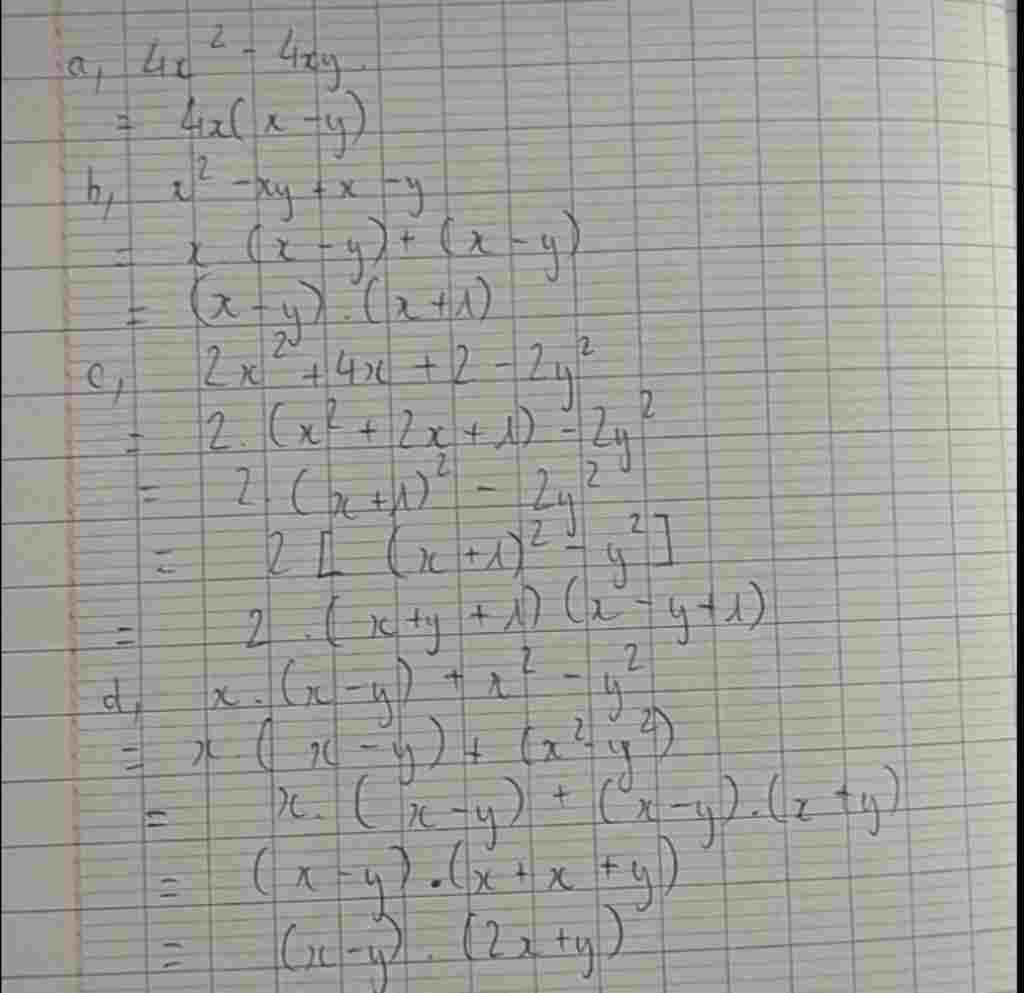 a, 4x² - 4xy.
= 4x(x - y)
b, x² - xy + x - y
= x (x - y) + (x - y)
= (x - y) . (x + 1)
c, 2x² + 4x + 2 - 2y²
= 2. (x² + 2x + 1) - 2y²
= 2. (x + 1)² - 2y²
= 2 [ (x + 1)² - y² ]
= 2 . (x + y + 1) (x - y + 1)
d, x. (x - y) + x² - y²
= x. (x - y) + (x² - y²)
= x. (x - y) + (x - y) . (x + y)
= (x - y) . (x + x + y)
= (x - y) . (2x + y)